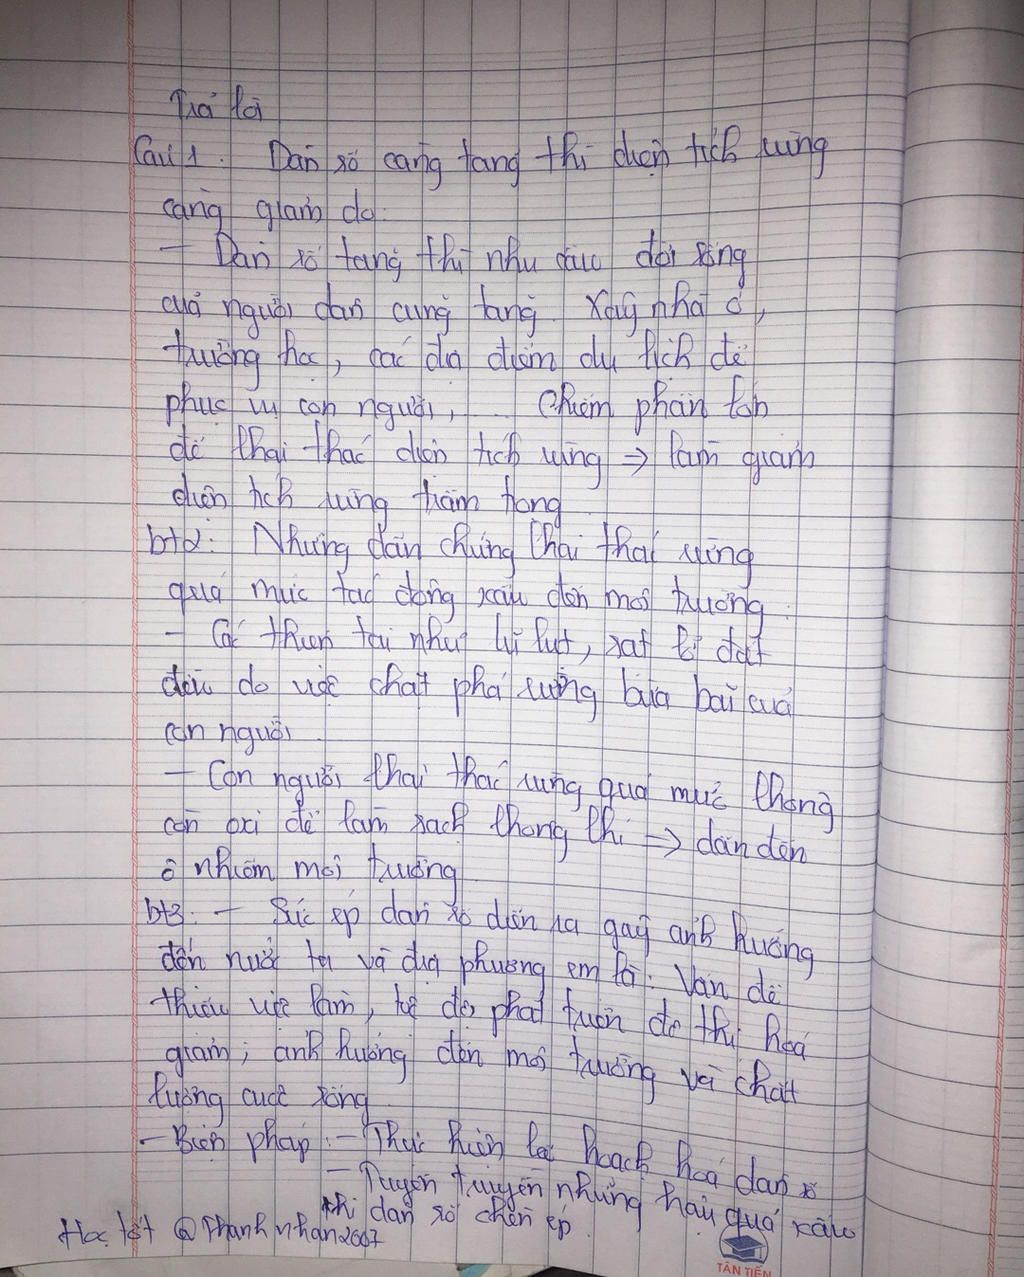 Trả lời
Câu 1. Dân số càng tăng thì diện tích rừng
càng giảm do:
- Dân số tăng thì nhu cầu đời sống
của người dân cũng tăng. Xây nhà ở,
trường học, các địa điểm du lịch để
phục vụ con người, ..... chiếm phần lớn
để khai thác diện tích rừng => làm giảm
diện tích rừng trầm trọng
bt2: Những dẫn chứng khai thác rừng
quá mức tác động xấu đến môi trường.
- Các thiên tai như lũ lụt, sạt lở đất
đều do việc chặt phá rừng bừa bãi của
con người
- Con người khai thác rừng quá mức không
còn oxi để làm sạch không khí -> dẫn đến
ô nhiễm môi trường
bt3: - Sức ép dân số diễn ra gây ảnh hưởng
đến nước ta và địa phương em là: Vấn đề
thiếu việc làm, tốc độ phát triển đô thị hoá
giảm; ảnh hưởng đến môi trường và chất
lượng cuộc sống
- Biện pháp: - Thực hiện kế hoạch hoá dân số
- Tuyên truyền những hậu quả xấu
khi dân số chèn ép.
Học tốt @Thanhnhan2007
TÂN TIẾN